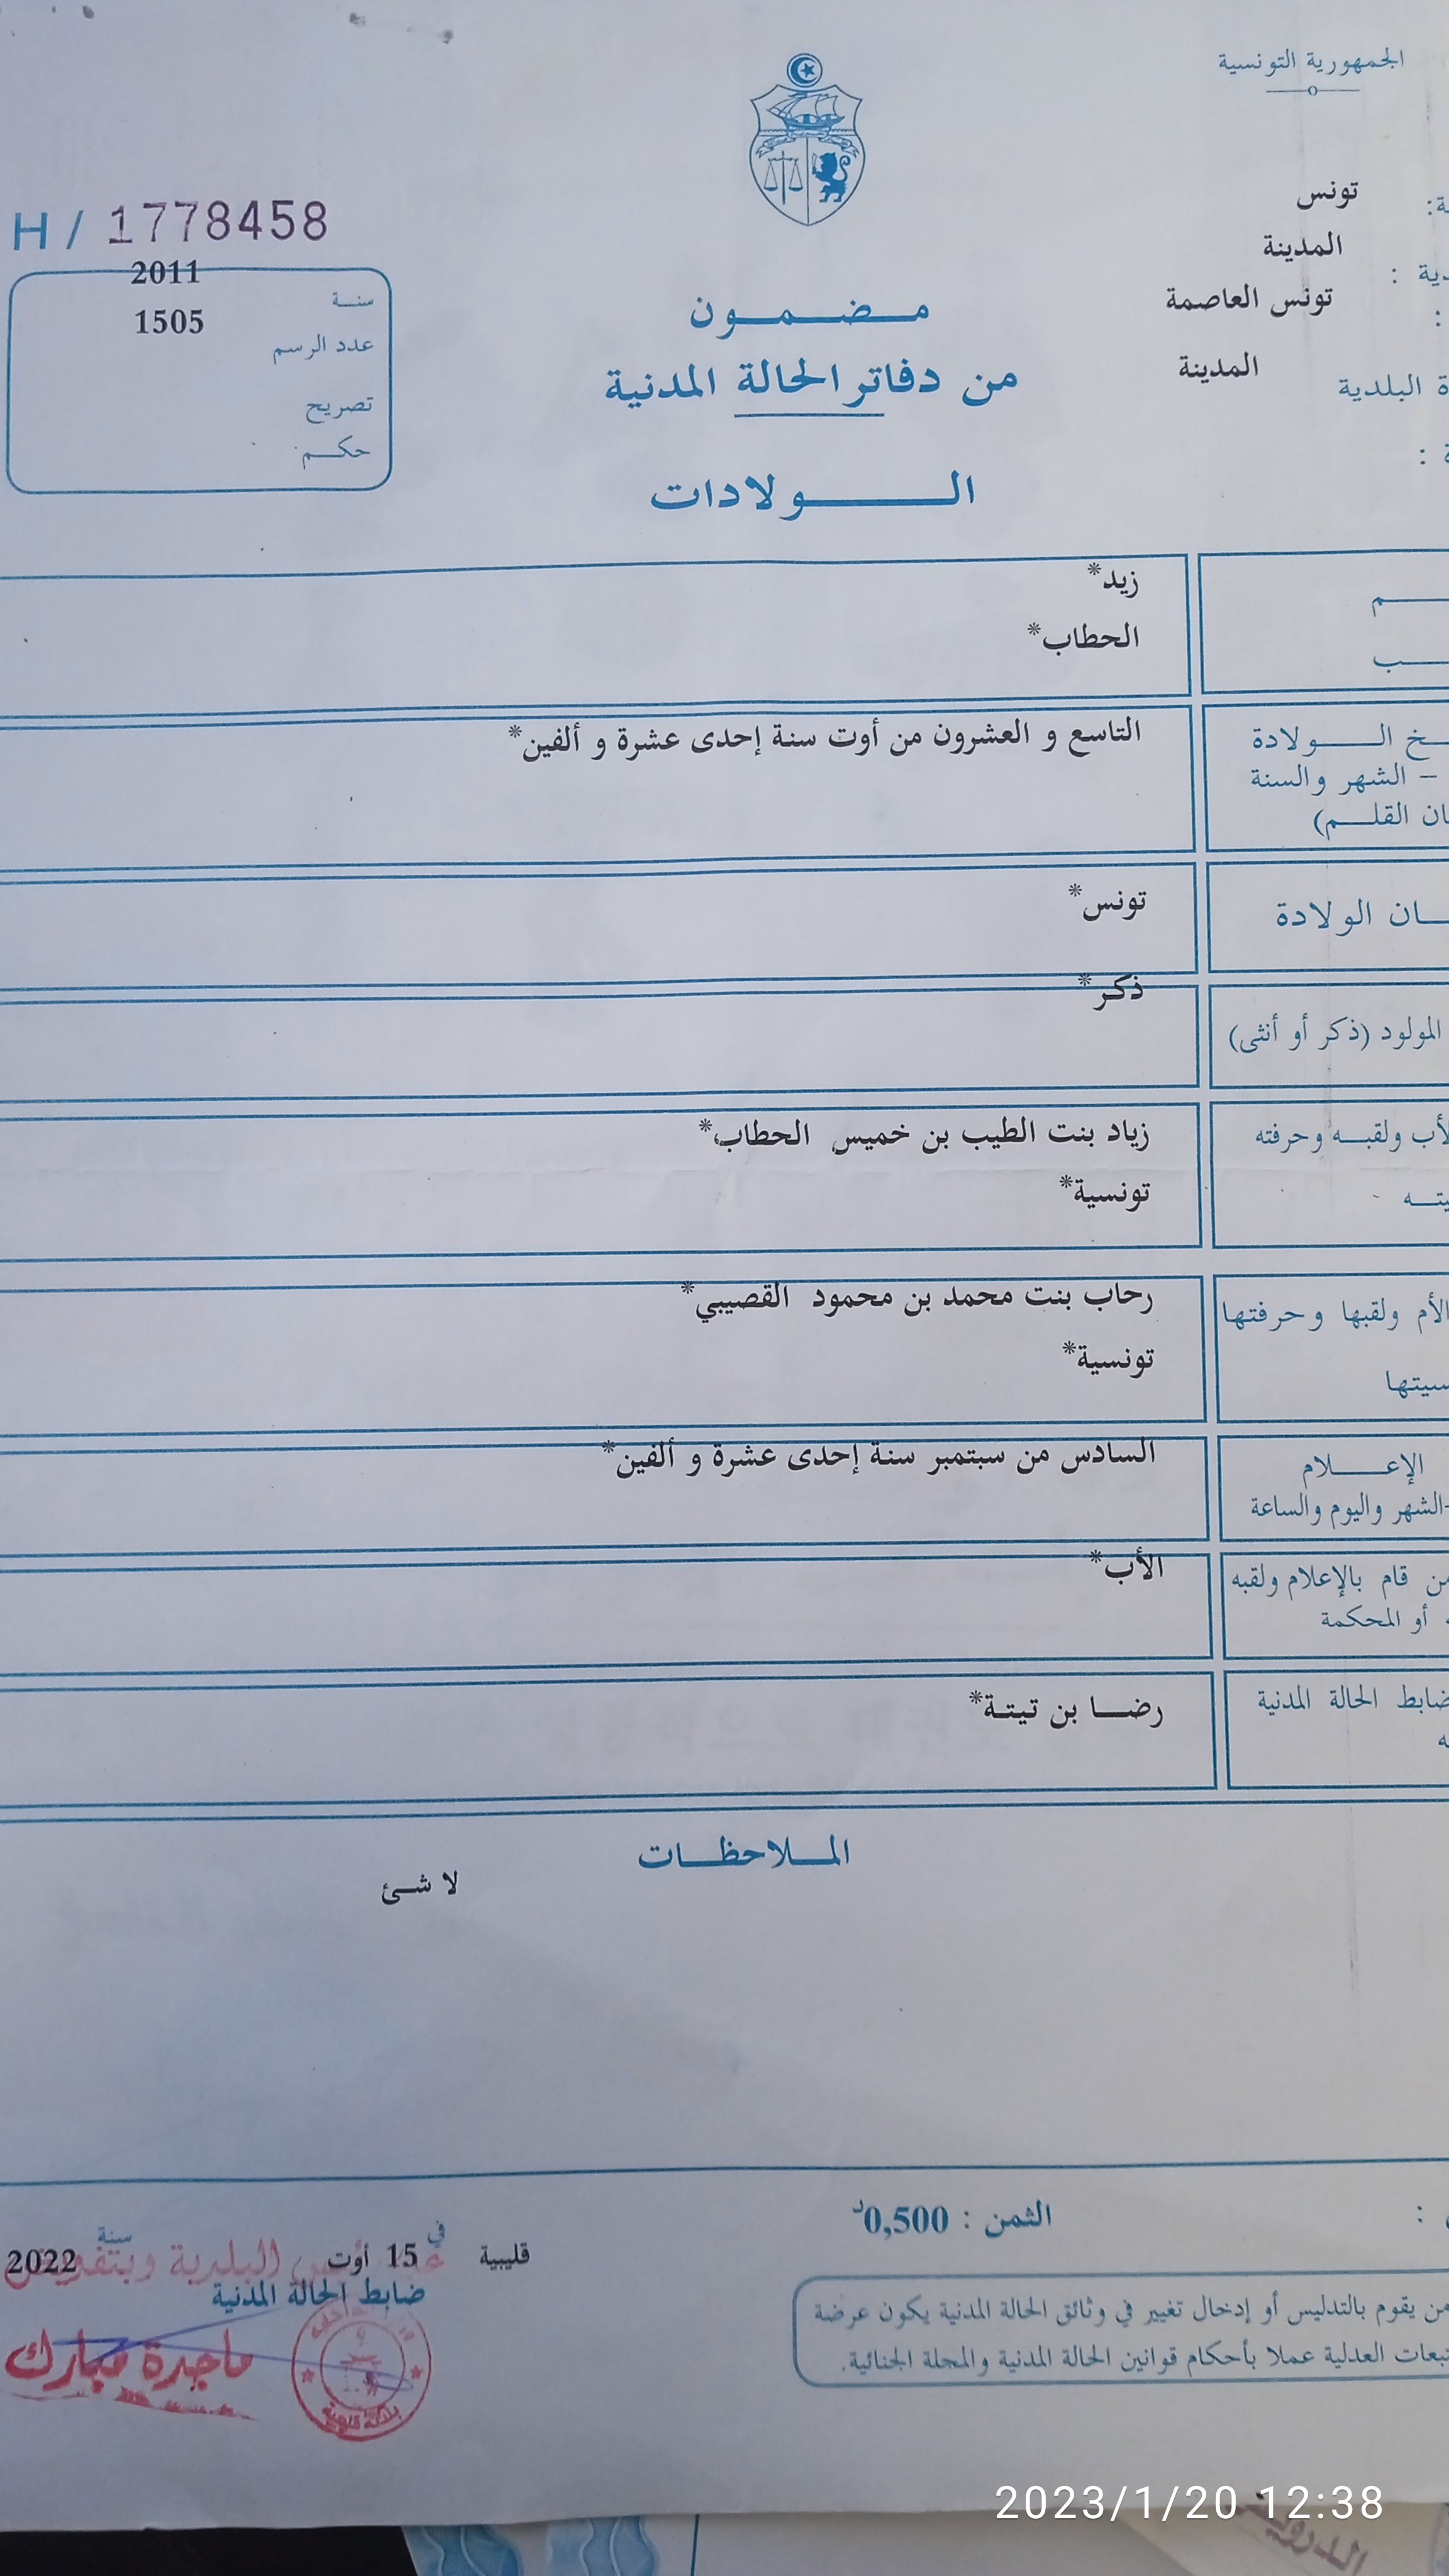 الجمهورية التونسية
تونس
المدينة
تونس العاصمة
البلدية
المدينة
H / 1778458
سنة 2011
عدد الرسم 1505
تصريح
حكم
مضمون
من دفاتر الحالة المدنية
الولادات
زيد*
الحطاب*
الولادة
التاسع و العشرون من أوت سنة إحدى عشرة و ألفين*
– الشهر والسنة
القلم)
الولادة
تونس*
المولود (ذكر أو أنثى)
ذكر*
ولقبه وحرفته
زياد بنت الطيب بن خميس الحطاب*
تونسية*
الأم ولقبها وحرفتها
رحاب بنت محمد بن محمود القصيبي*
تونسية*
الإعلام
السادس من سبتمبر سنة إحدى عشرة و ألفين*
-الشهر واليوم والساعة
قام بالإعلام ولقبه
الأب*
أو المحكمة
الحالة المدنية
رضا بن تيتة*
الملاحظات
لا شئ
الثمن : 0,500د
قليبية في 15 أوت سنة 2022
ضابط الحالة المدنية
البلدية وبتفويض
ماجدة مبارك
بلدية قليبية
من يقوم بالتدليس أو إدخال تغيير في وثائق الحالة المدنية يكون عرضة
العدلية عملا بأحكام قوانين الحالة المدنية والمجلة الجنائية.
2023/1/20 12:38